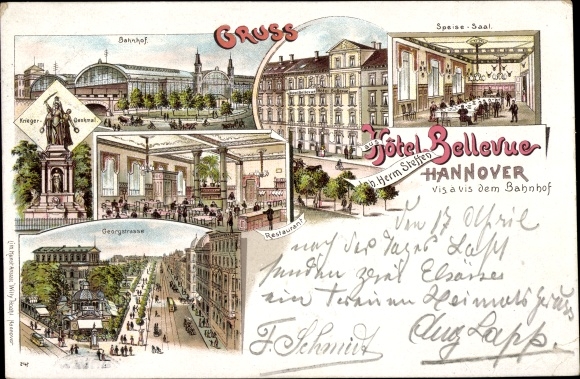 Gruss
Bahnhof.
Speise-Saal.
Krieger-Denkmal.
aus
Hôtel Bellevue
Inh. Herm Steffen
HANNOVER
vis à vis dem Bahnhof
Restaurant
Georgstrasse
den 17 April
nach des Tages Last
senden zwei Elsässer
ein treuen Heimatsgruss
F. Schmidt
Aug Lapp.
241